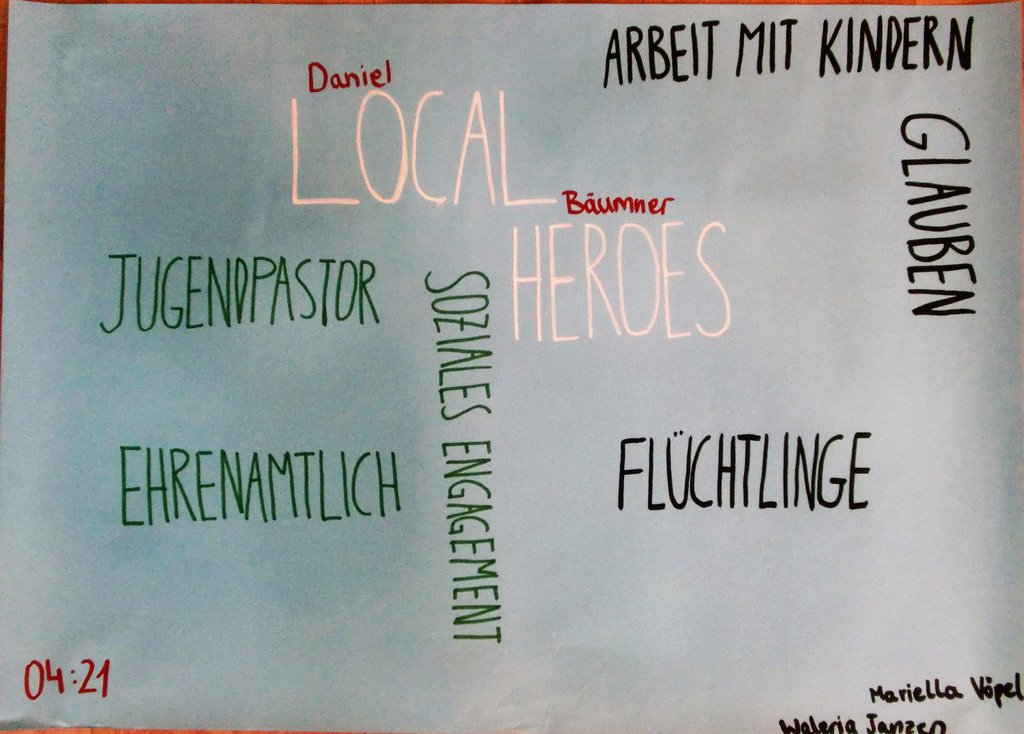 ARBEIT MIT KINDERN
Daniel
LOCAL
GLAUBEN
Bäumner
HEROES
JUGENDPASTOR
SOZIALES ENGAGEMENT
EHRENAMTLICH
FLÜCHTLINGE
04:21
Mariella Vöpel
Waleria Janzen